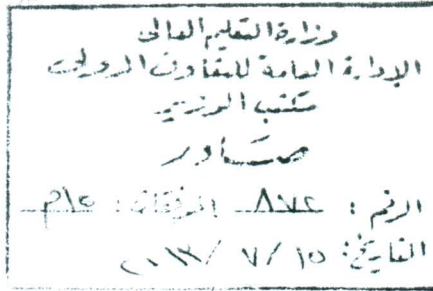 وزارة التعليم العالى
الإدارة العامة للتعاون الدولى
مكتب الوزير
صادر
الرقم : ٨٧٢ المرفقات :
التاريخ : ١٥ / ٧ / ٢٠١٣